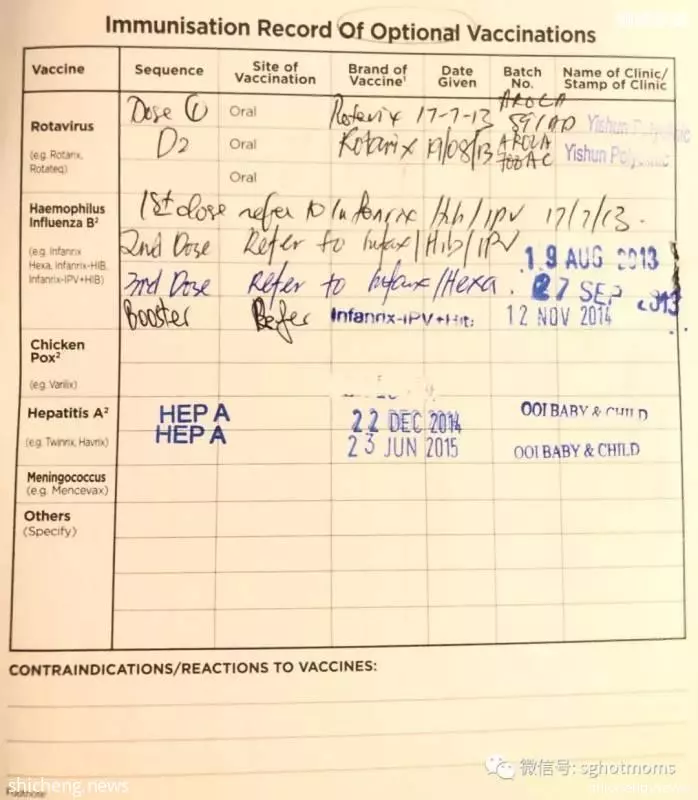 Immunisation Record Of Optional Vaccinations
Vaccine Sequence Site of Vaccination Brand of Vaccine¹ Date Given Batch No. Name of Clinic/ Stamp of Clinic
Rotavirus
(e.g. Rotarix, Rotateq)
Dose ① Oral Rotarix 17-7-13 AROLA Yishun Polyclinic
D2 Oral Rotarix 19/08/13 AROLA Yishun Polyclinic
Oral
Haemophilus Influenza B²
(e.g. Infanrix Hexa, Infanrix-HIB, Infanrix-IPV+HIB)
1st dose refer to Infanrix Hib/IPV 17/7/13.
2nd Dose Refer to Infax/Hib/IPV 19 AUG 2013
3rd Dose Refer to Infanx/Hexa. 27 SEP 2013
Booster Refer Infanrix-IPV+Hib 12 NOV 2014
Chicken Pox²
(e.g. Varilix)
Hepatitis A²
(e.g. Twinrix, Havrix)
HEP A 22 DEC 2014 OOI BABY & CHILD
HEP A 23 JUN 2015 OOI BABY & CHILD
Meningococcus
(e.g. Mencevax)
Others
(Specify)
CONTRAINDICATIONS/REACTIONS TO VACCINES:
微信号: sghotmoms
shicheng.news